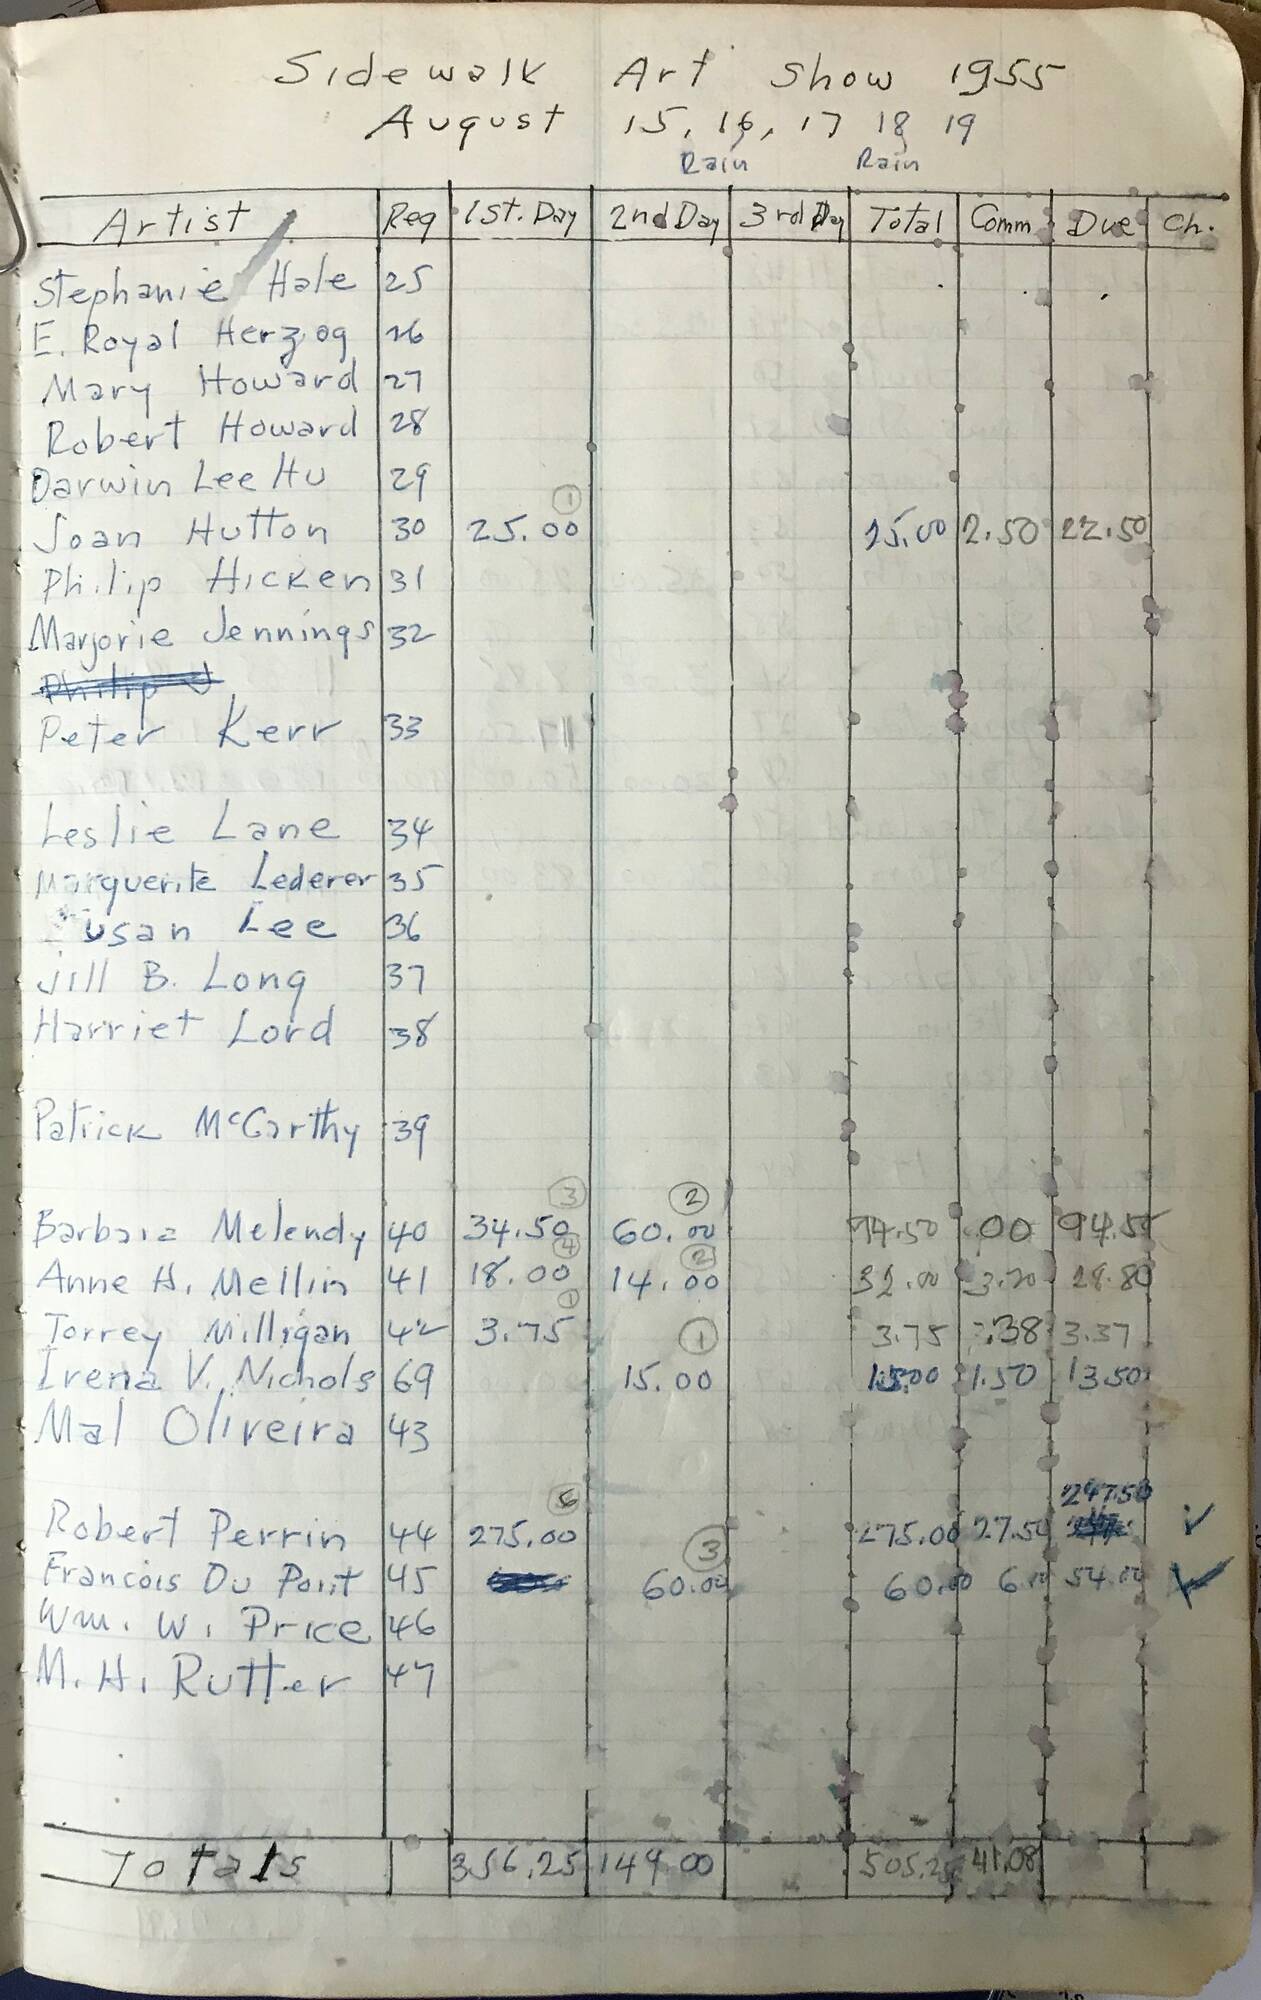 Sidewalk Art Show 1955
August 15, 16, 17 18 19
Rain Rain
Artist Reg 1st. Day 2nd Day 3rd Day Total Comm Due Ch.
Stephanie Hale 25
E. Royal Herzog 26
Mary Howard 27
Robert Howard 28
Darwin Lee Hu 29
1
Joan Hutton 30 25.00 25.00 2.50 22.50
Philip Hicken 31
Marjorie Jennings 32
Philip J
Peter Kerr 33
Leslie Lane 34
Marguerite Lederer 35
Susan Lee 36
Jill B. Long 37
Harriet Lord 38
Patrick McCarthy 39
3 2
Barbara Melendy 40 34.50 60.00 94.50 00 94.50
4 2
Anne H. Mellin 41 18.00 14.00 32.00 3.20 28.80
1
Torrey Milligan 42 3.75 3.75 .38 3.37
1
Irena V. Nichols 69 15.00 15.00 1.50 13.50
Mal Oliveira 43
247.50
Robert Perrin 44 275.00 275.00 27.50 ✓
3
Francois Du Pont 45 60.00 60.00 6.00 54.00 ✓
Wm. W. Price 46
M. H. Rutter 47
Totals 356.25 149.00 505.25 41.08